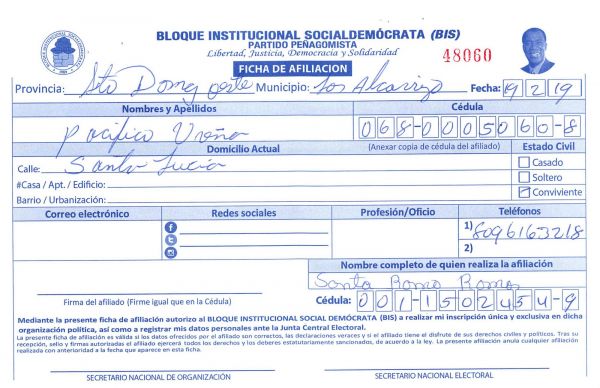 BLOQUE INSTITUCIONAL SOCIALDEMÓCRATA (BIS)
PARTIDO PEÑAGOMISTA
Libertad, Justicia, Democracia y Solidaridad
48060
FICHA DE AFILIACION
Provincia: Sto Domgo oeste Municipio: Los Alcarrizo Fecha: 19 2 19
Nombres y Apellidos Cédula
Pacifico Ureña 068-0005060-8
Domicilio Actual (Anexar copia de cédula del afiliado) Estado Civil
Calle: Santa Lucia Casado
#Casa / Apt. / Edificio: Soltero
Barrio / Urbanización: Conviviente
Correo electrónico Redes sociales Profesión/Oficio Teléfonos
1) 8096163218
2)
Nombre completo de quien realiza la afiliación
Santo Romo Ramos
Firma del afiliado (Firme igual que en la Cédula) Cédula: 001-1502454-9
Mediante la presente ficha de afiliación autorizo al BLOQUE INSTITUCIONAL SOCIAL DEMÓCRATA (BIS) a realizar mi inscripción única y exclusiva en dicha
organización política, así como a registrar mis datos personales ante la Junta Central Electoral.
La presente ficha de afiliación es válida si los datos ofrecidos por el afiliado son correctos, las declaraciones veraces y si el afiliado tiene el disfrute de sus derechos civiles y políticos. Tras su
recepción, sello y firmas autorizadas el afiliado ejercerá todos los derechos y los deberes estatutariamente sancionados, de acuerdo a la ley. La presente afiliación anula cualquier afiliación
realizada con anterioridad a la fecha que aparece en esta ficha.
SECRETARIO NACIONAL DE ORGANIZACIÓN SECRETARIO NACIONAL ELECTORAL